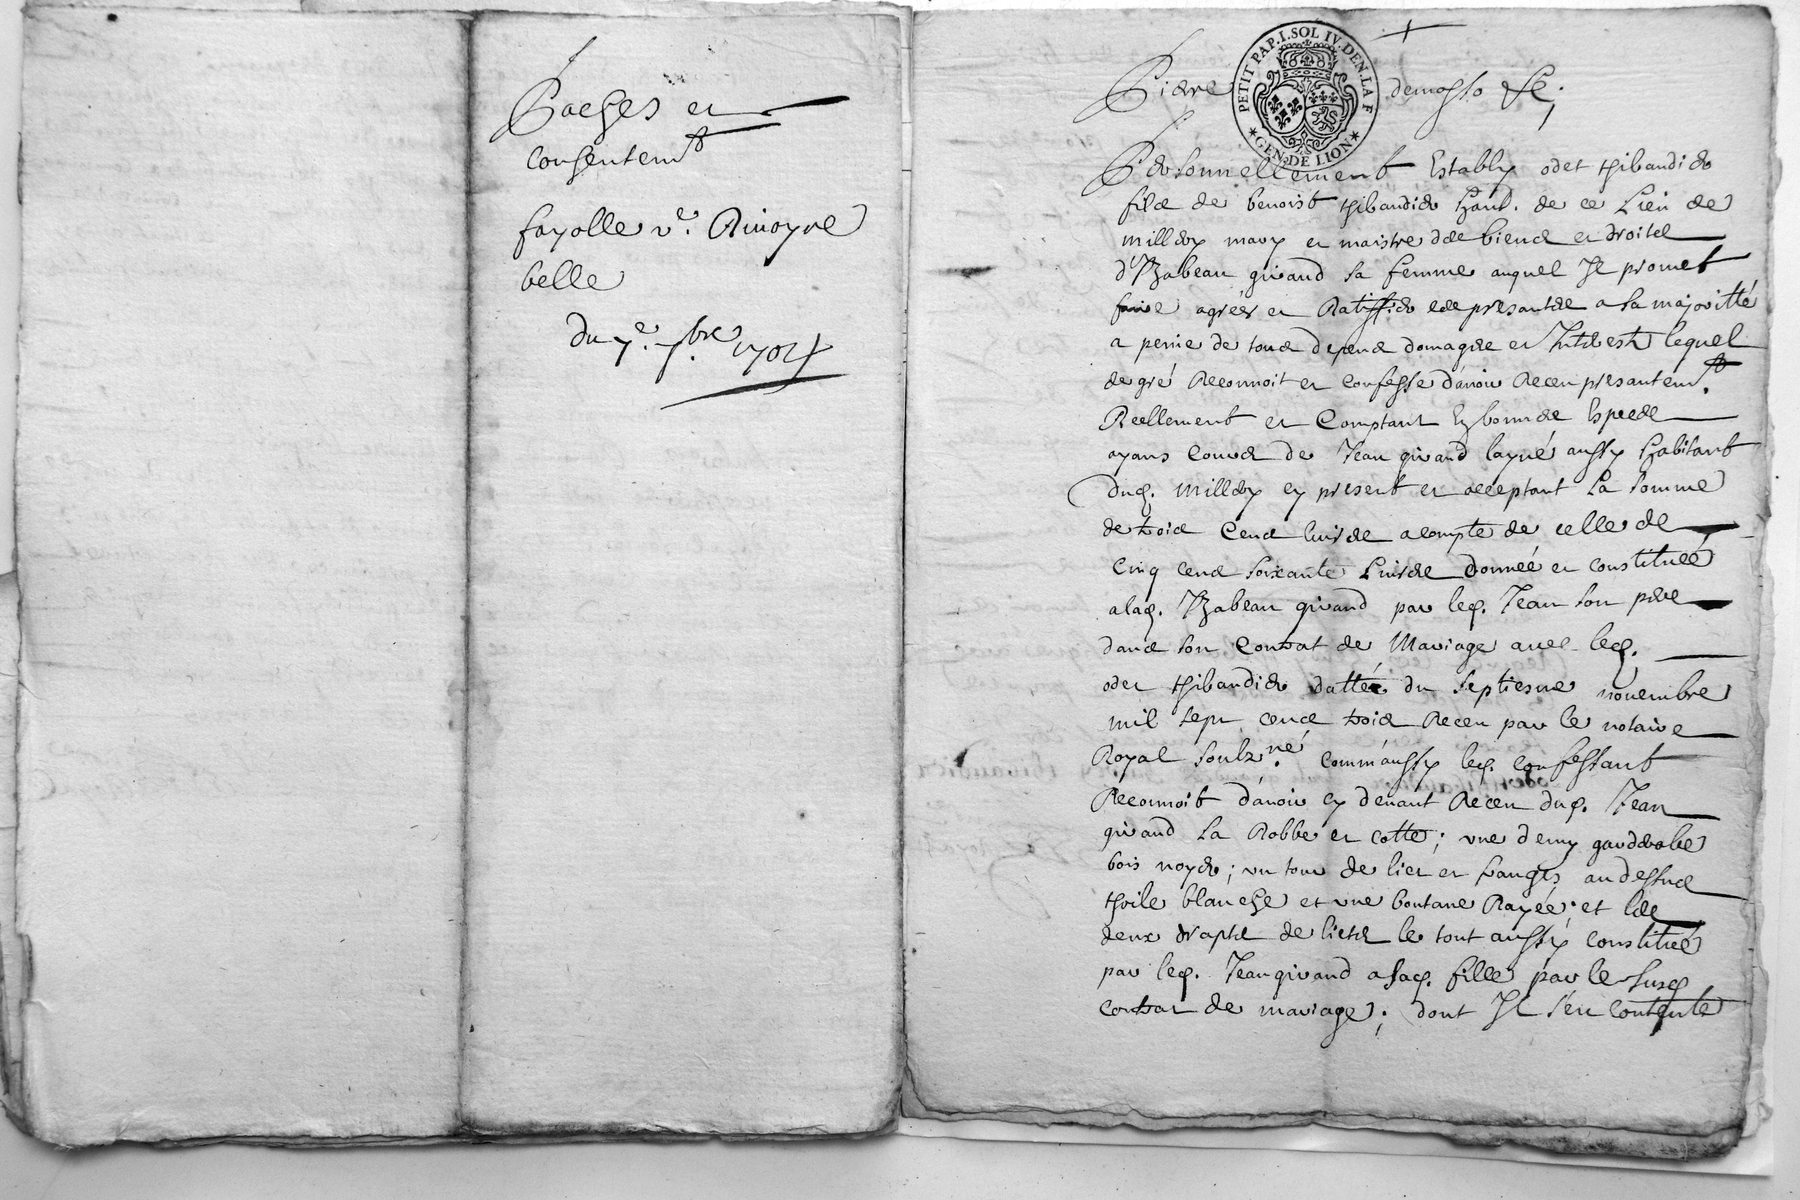 Pacches et
consentemt
fayolle ve. Rivoyre
belle
du 7e. 7bre 1704
PETIT PAP. I. SOL IV. DEN. LA F
GEN. DE LION
Piere
Personnellement Estably odet thibaudier
filz de benoist thibaudier hant. de ce Lieu de
Millery mary et maistre des biens et droits
d'Yzabeau girard sa femme auquel Il promet
faire agréér et Ratiffier ces presantes a sa majoritté
a peine de tous depens domages et Interests lequel
de gré Reconnoit et confesse d'avoir Receu presantemt.
Reellement et Comptant En bonnes Especes
ayans Cours de Jean girard layné aussy habitant
dud. Millery cy present et acceptant La somme
de trois Cens livres acompte de celle de
Cinq cens soixante Livres donnéé et constituéé
alad. Yzabeau girard par led. Jean son pere
dans son Contrat de Mariage avec led.
odet thibaudier datté du septiesme novembre
mil sept cens trois Receu par le notaire
Royal soubzné. comm'aussy led. confessant
Reconnoit d'avoir cy devant Receu dud. Jean
girard La Robbe et cotte; une demy garderobe
bois noyer; un tour de lict et franges au dessus
thoile blanche et une boutane Rayéé; et les
deux draps de licts le tout aussy constitué
par led. Jean girard a sad. fille par le susd
contrat de mariage; dont Il s'en contente